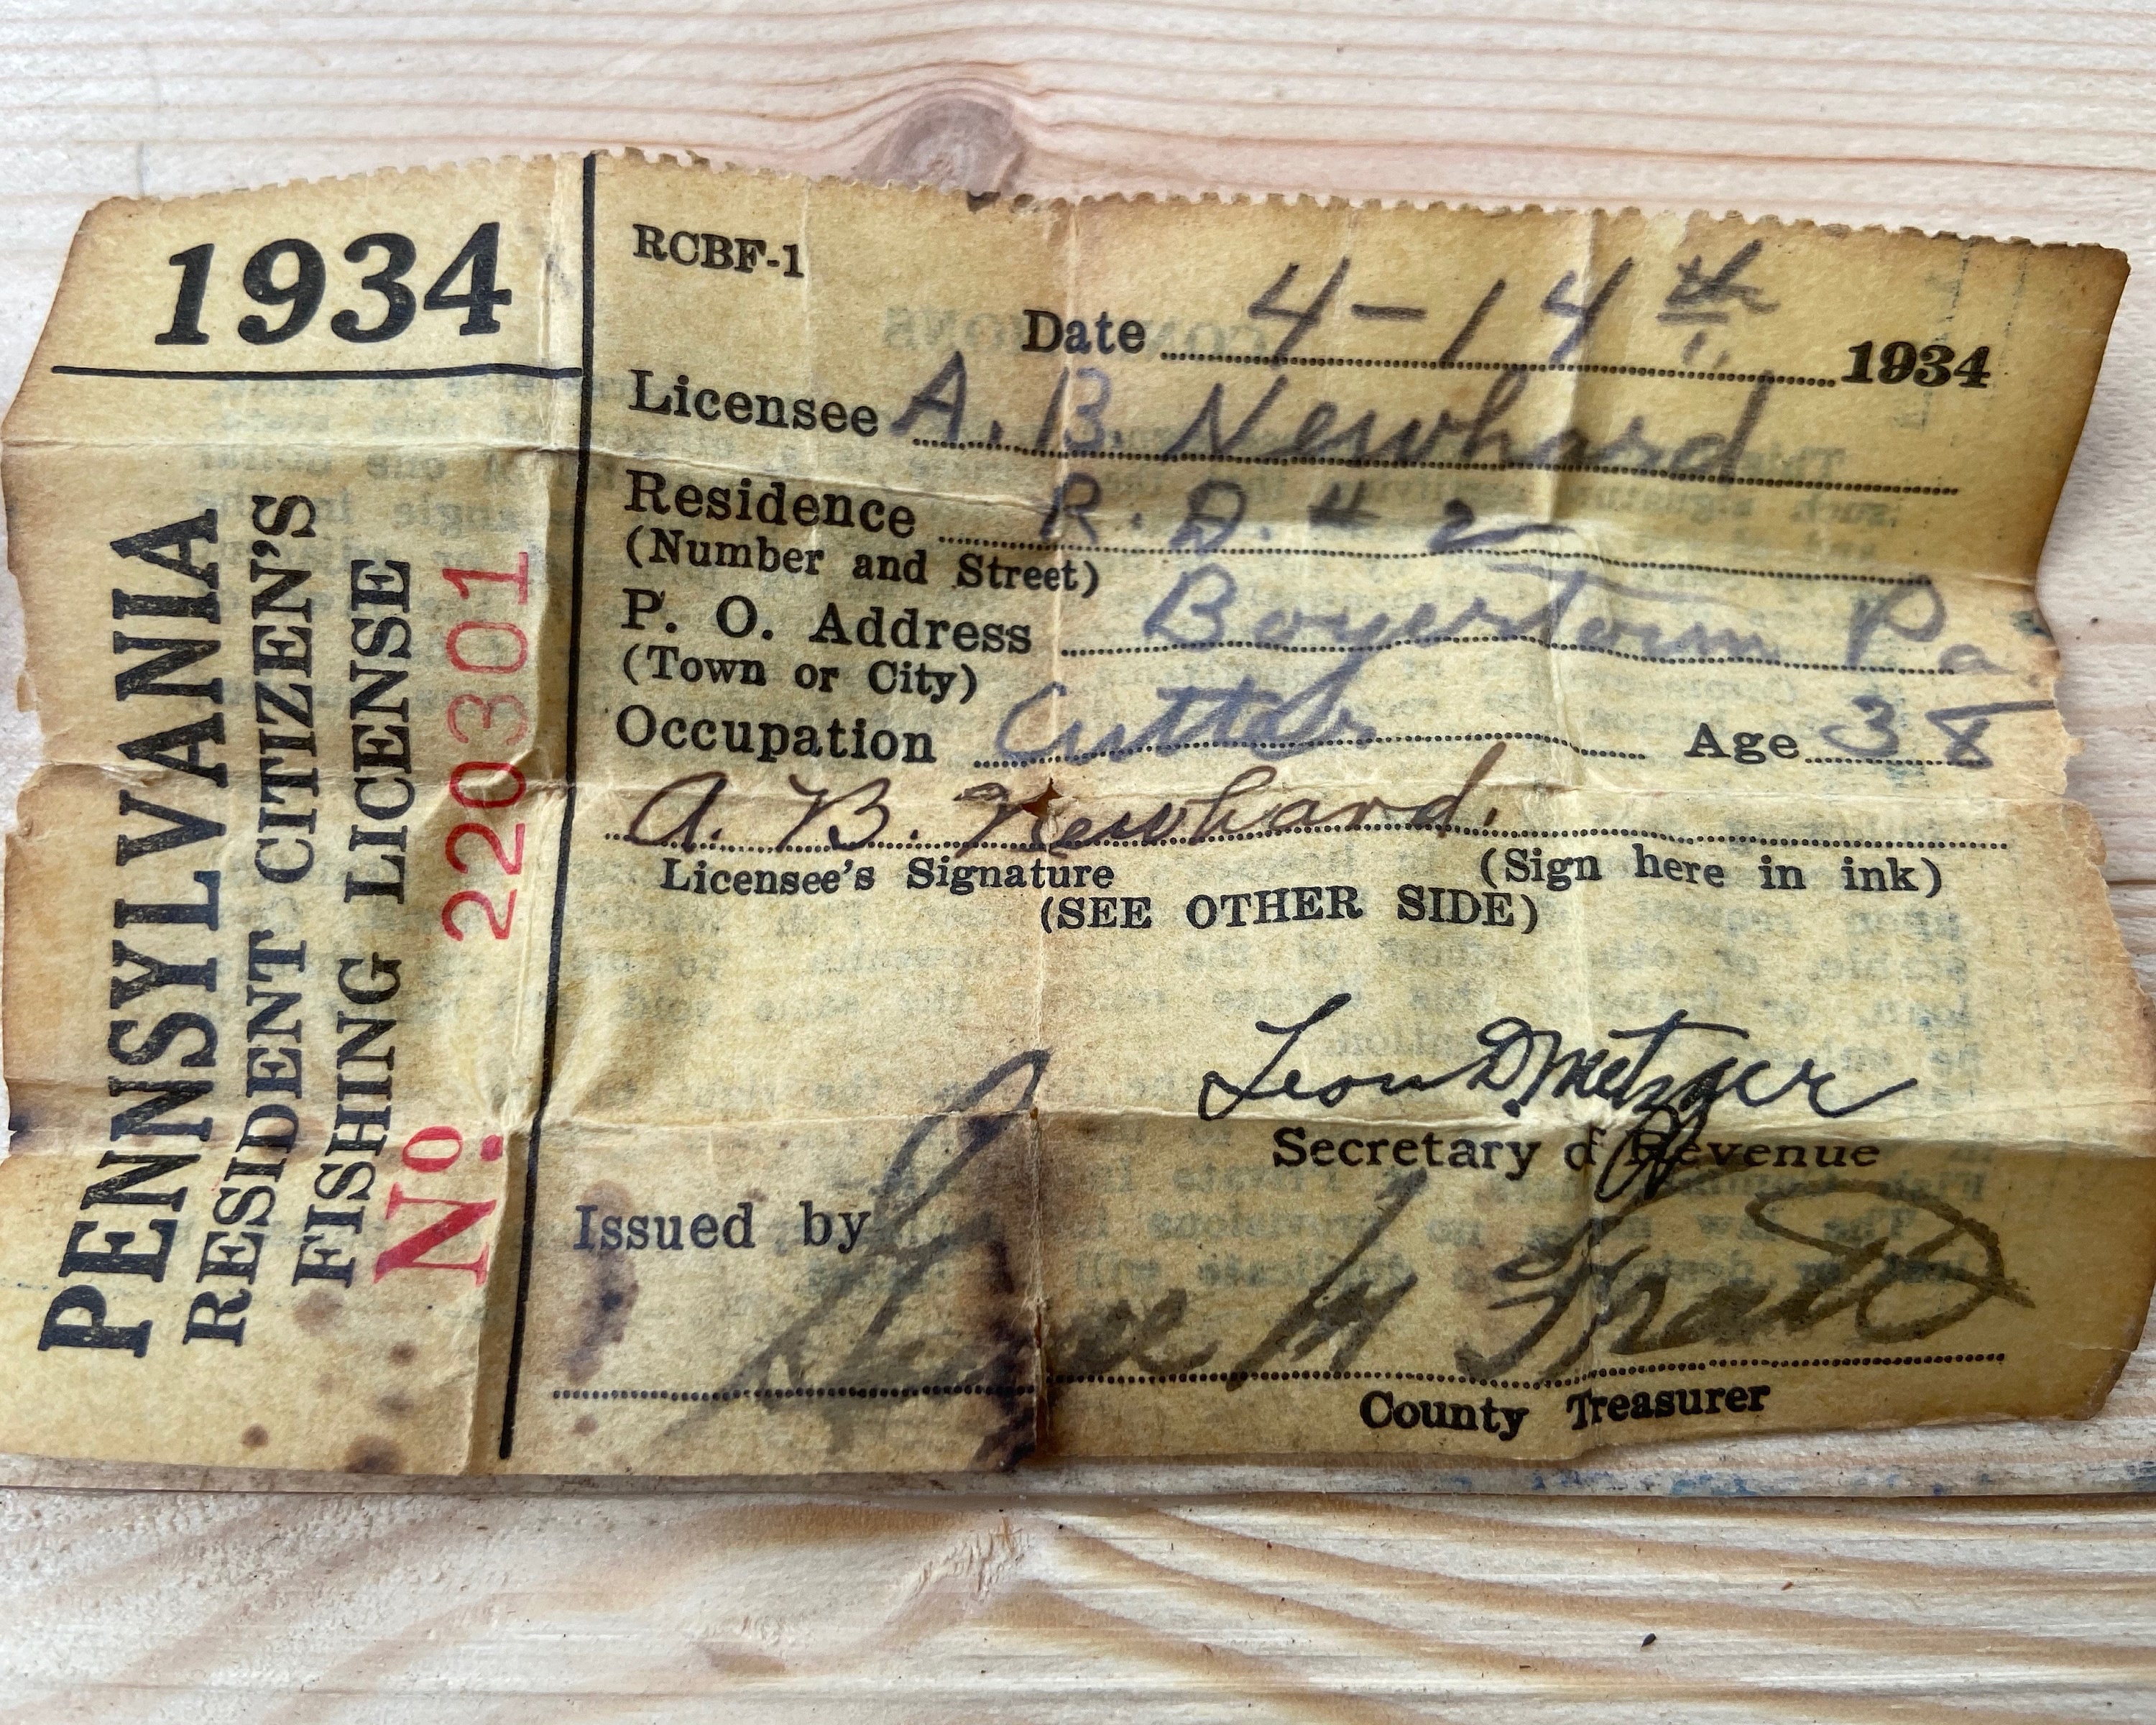 1934
PENNSYLVANIA
RESIDENT CITIZEN'S
FISHING LICENSE
No. 220301
RCBF-1
Date 4-14th 1934
Licensee A. B. Newhard
Residence R. D. # 2
(Number and Street)
P. O. Address Boyertown Pa
(Town or City)
Occupation Cutter Age 38
A. B. Newhard.
Licensee's Signature (Sign here in ink)
(SEE OTHER SIDE)
Leon D. Metzger
Secretary of Revenue
Issued by
County Treasurer